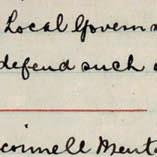 Local Govern
defend such
connell Bent